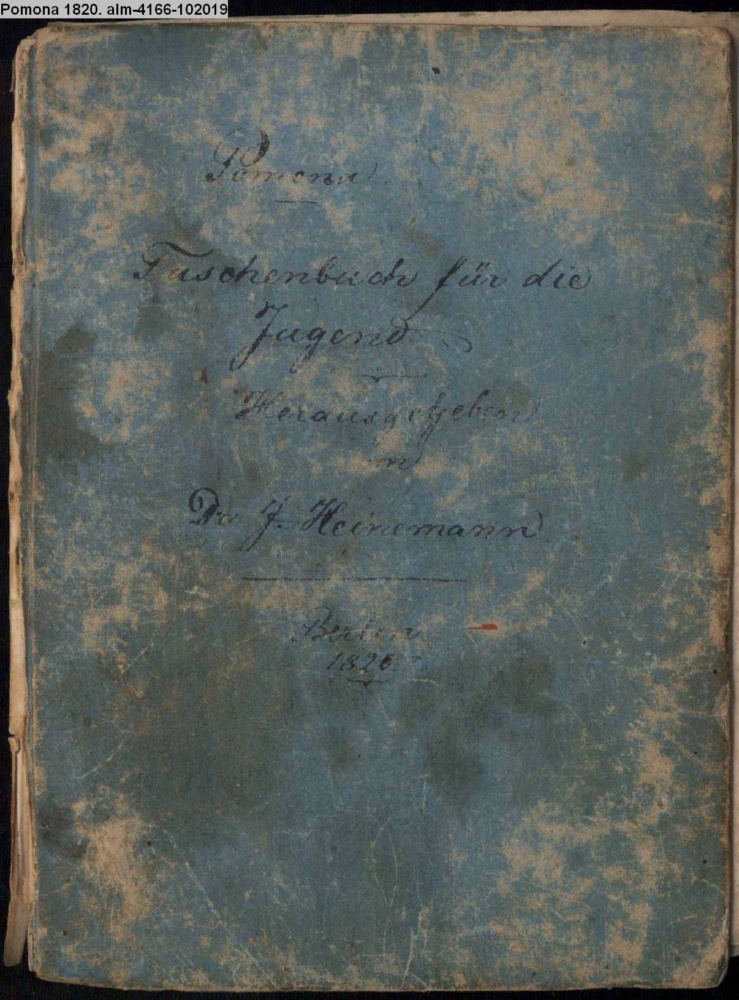 Pomona 1820. alm-4166-102019
Pomona
Taschenbuch für die
Jugend
Herausgegeben
Dr J. Heinemann
Berlin